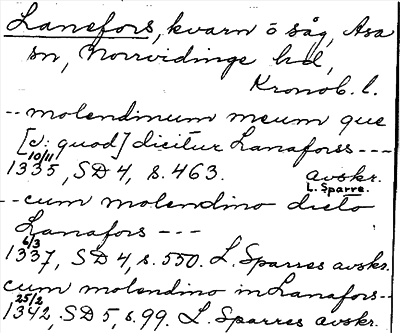 Lanefors, kvarn o såg, Asa
sn, Norrvidinge hd,
Kronob. l.
-- molendinum meum que
[ɔ: quod] dicitur Lanaforss ---
10/11
1335, SD 4, s. 463. avskr.
L. Sparre.
-- cum molendino dicto
Lanafors ---
6/3
1337, SD 4, s. 550. L. Sparres avskr.
cum molendino in Lanafors--
25/2
1342. SD 5, s. 99. L. Sparres avskr.